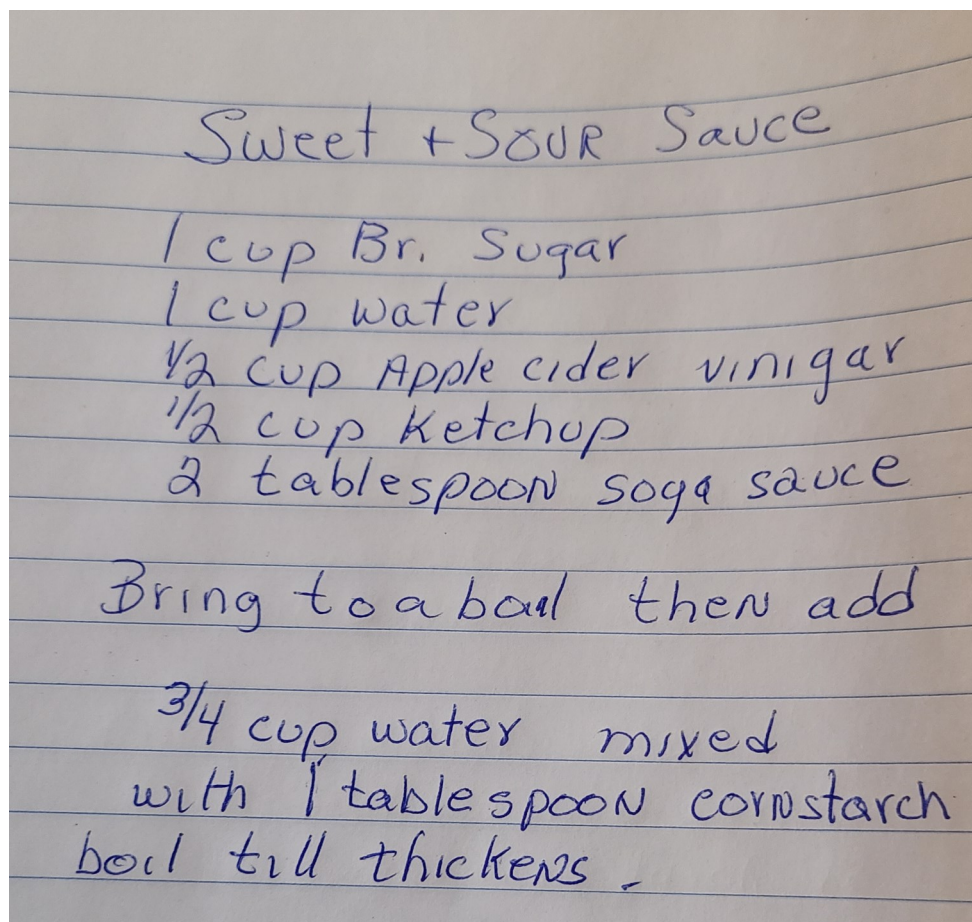 Sweet + SOUR Sauce
1 cup Br. Sugar
1 cup water
1/2 cup Apple cider vinigar
1/2 cup Ketchup
2 tablespoon soya sauce
Bring to a boil then add
3/4 cup water mixed
with 1 tablespoon cornstarch
boil till thickens.